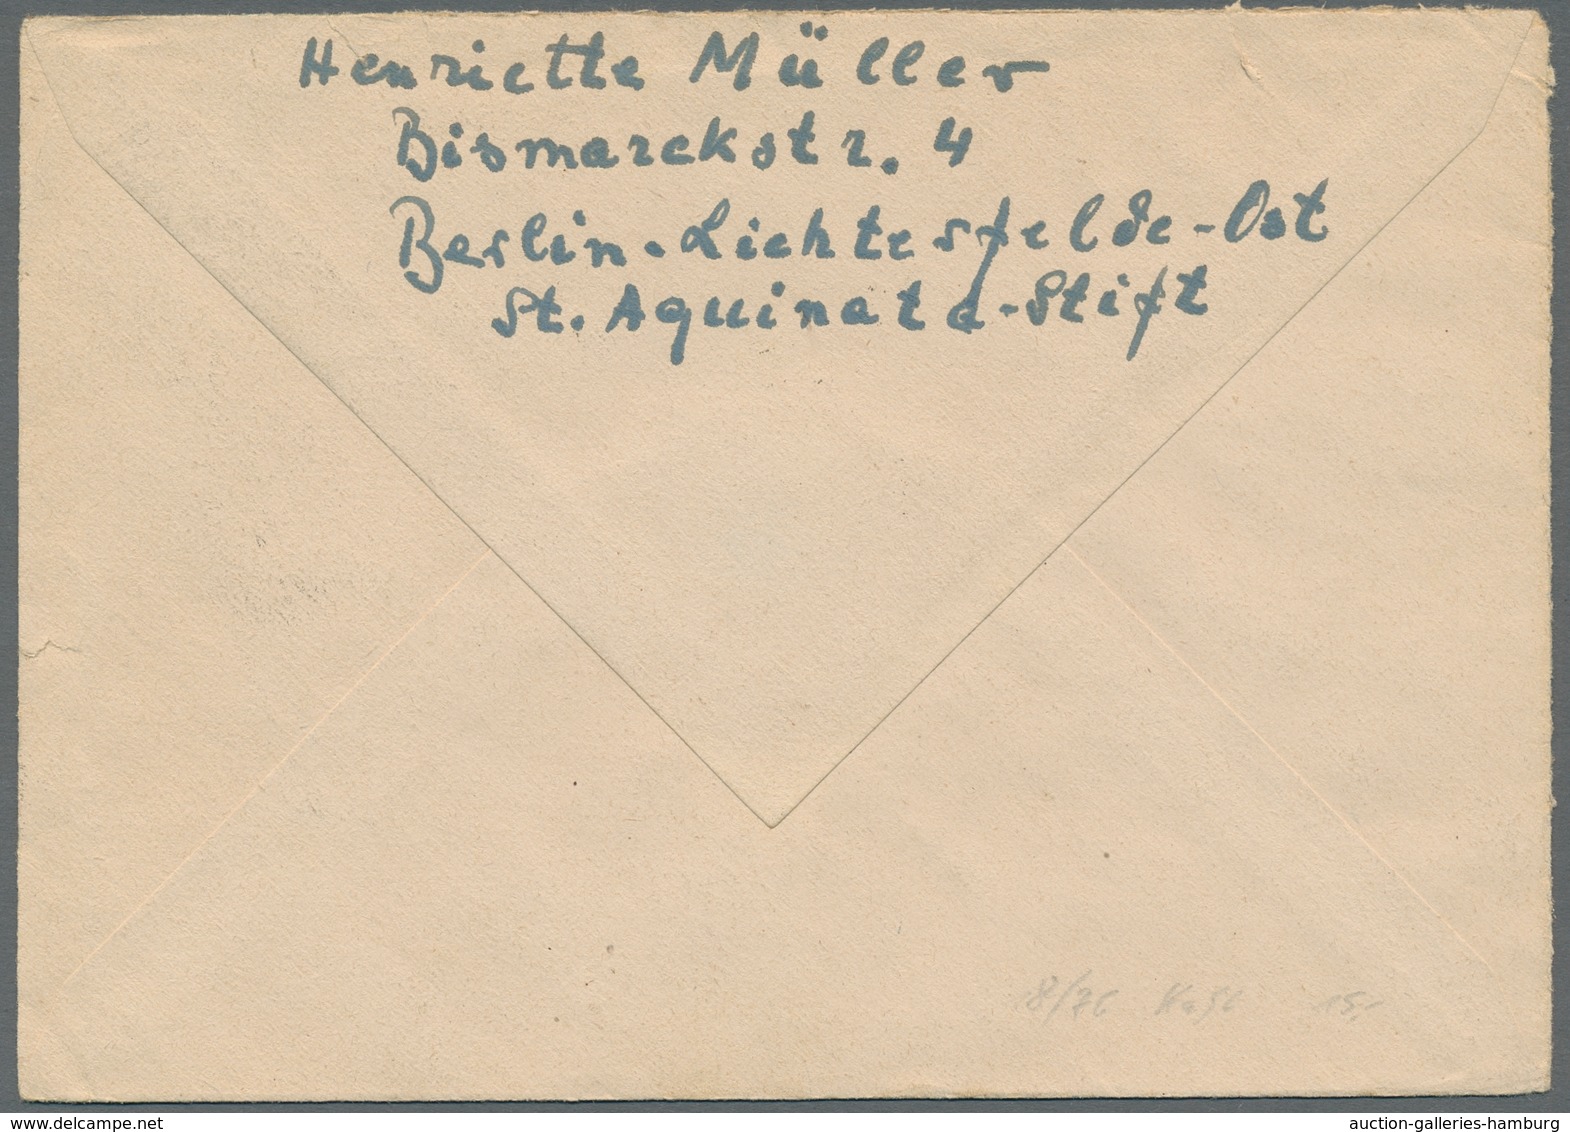 Henriette Müller
Bismarckstr. 4
Berlin-Lichterfelde-Ost
St. Aquinata-Stift
18/76 15,-
www.delcampe.net
auction-galleries-hamburg